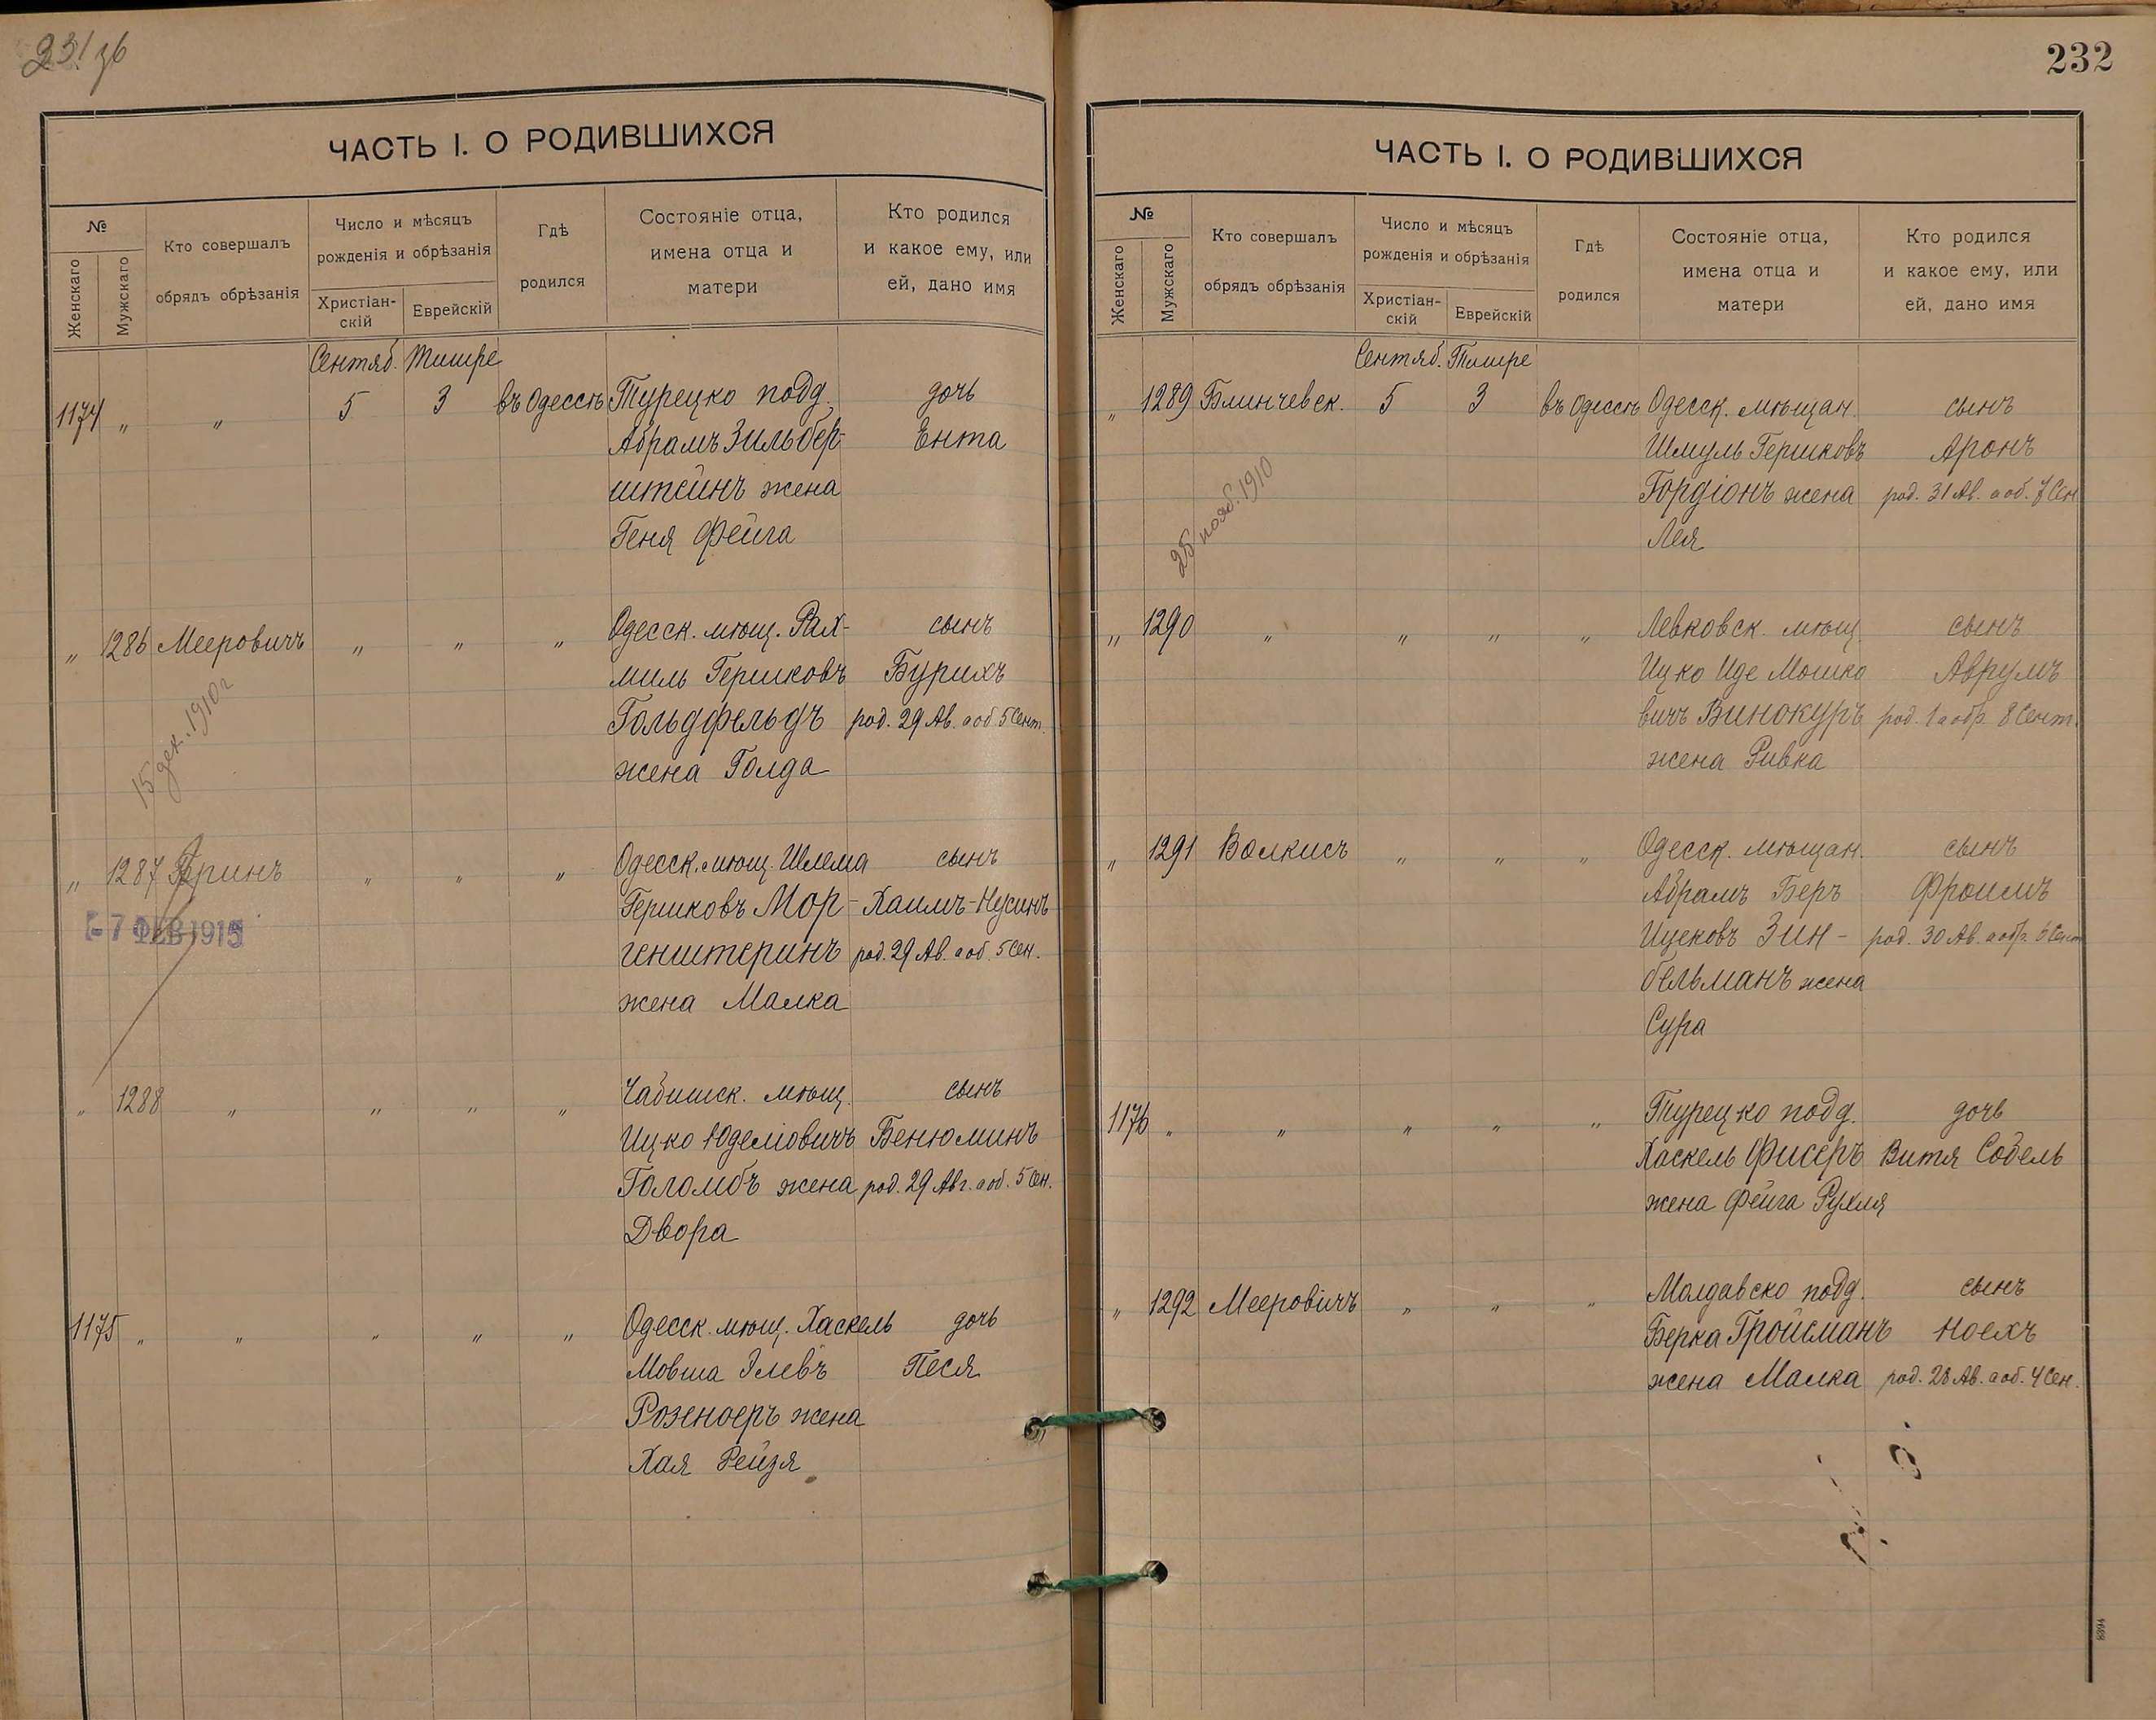 231 об
ЧАСТЬ I. О РОДИВШИХСЯ
№
Женскаго
Мужскаго
Кто совершалъ
обрядъ обрѣзанія
Число и мѣсяцъ
рожденія и обрѣзанія
Христіан-
скій
Еврейскій
Гдѣ
родился
Состояніе отца,
имена отца и
матери
Кто родился
и какое ему, или
ей, дано имя
Сентяб. Тишре
1174 " " 5 3 въ Одессѣ Турецко подд. дочь
Абрамъ Зильбер- Ента
штейнъ жена
Геня Фейга
" 1286 Мееровичъ " " " Одесск. мѣщ. Рах- сынъ
миль Гершковъ Бурихъ
Гольдфельдъ род. 29 Ав. а об. 5 Сент.
жена Голда
15 дек. 1910 г
" 1287 Гринъ " " " Одесск. мѣщ. Шлема сынъ
Гершковъ Мор- Хаимъ-Нусинъ
генштернъ род. 29 Ав. а об. 5 Сен.
жена Малка
- 7 ФЕВ 1915
" 1288 " " " " Чабишск. мѣщ. сынъ
Ицко Юделіовичъ Бенюминъ
Голомбъ жена род. 29 Авг. а об. 5 Сен.
Двора
1175 " " " " " Одесск. мѣщ. Хаскель дочь
Мовша Элевъ Песя
Розеноеръ жена
Хая Рейзя
232
ЧАСТЬ I. О РОДИВШИХСЯ
№
Женскаго
Мужскаго
Кто совершалъ
обрядъ обрѣзанія
Число и мѣсяцъ
рожденія и обрѣзанія
Христіан-
скій
Еврейскій
Гдѣ
родился
Состояніе отца,
имена отца и
матери
Кто родился
и какое ему, или
ей, дано имя
Сентяб. Тишре
" 1289 Блинчевск. 5 3 въ Одессѣ Одесск. мѣщан. сынъ
Шмуль Гершковъ Аронъ
Гордіонъ жена род. 31 Ав. а об. 7 Сен
Лея
25 нояб. 1910
" 1290 " " " " Левковск. мѣщ. сынъ
Ицко Иде Мошко Аврумъ
вичъ Винокуръ род. 1 а обр. 8 Сент.
жена Ривка
" 1291 Волкисъ " " " Одесск. мѣщан. сынъ
Абрамъ Беръ Фроимъ
Ицковъ Зин- род. 30 Ав. а обр. 6 Сент
бельманъ жена
Сура
1176 " " " " " Турецко подд. дочь
Хаскель Фисеръ Витя Собель
жена Фейга Рухля
" 1292 Мееровичъ " " " Молдавско подд. сынъ
Берка Гройсманъ Ноехъ
жена Малка род. 28 Ав. а об. 4 Сен.